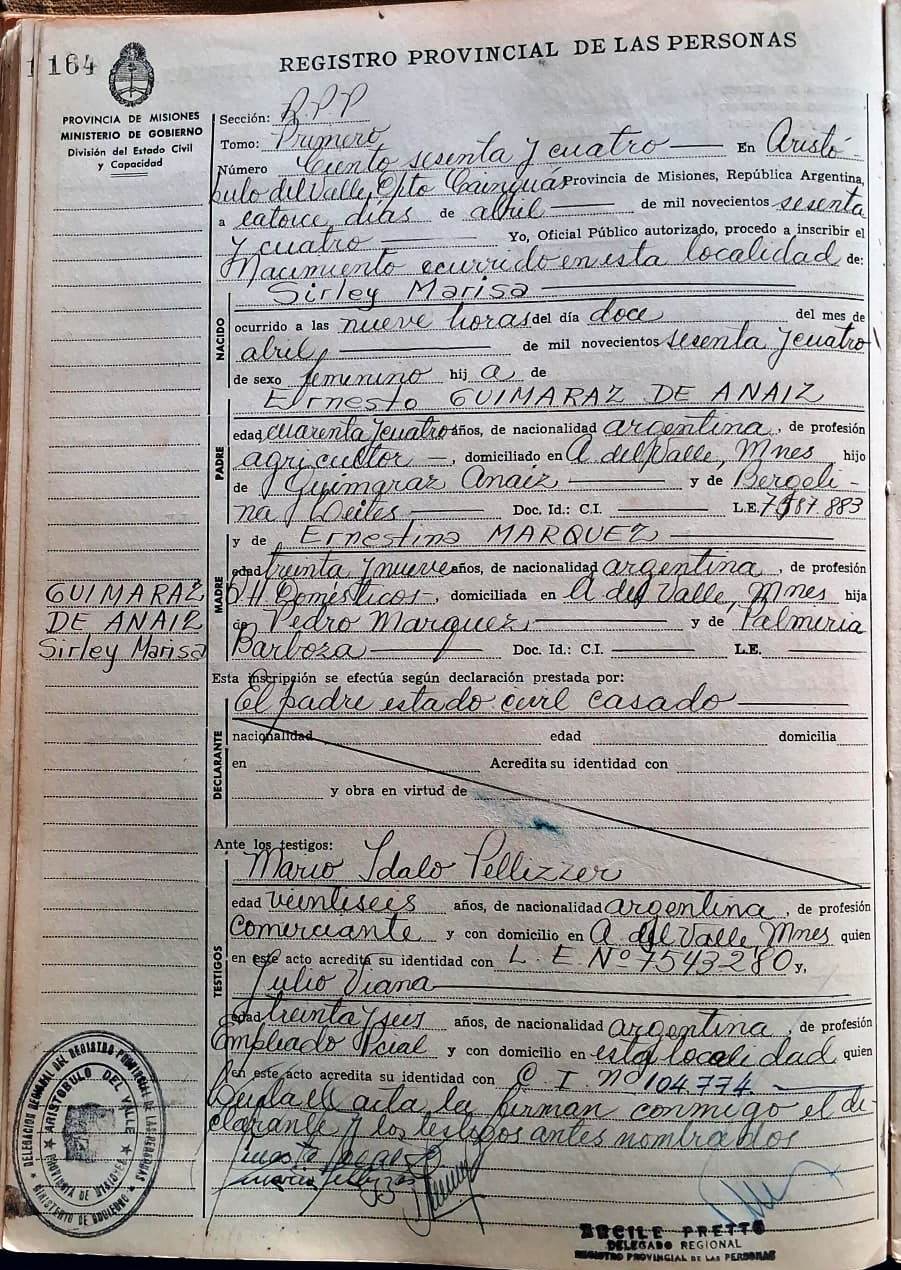 164
REGISTRO PROVINCIAL DE LAS PERSONAS
PROVINCIA DE MISIONES
MINISTERIO DE GOBIERNO
División del Estado Civil
y Capacidad
Sección: R.P.P
Tomo: Primero
Número Ciento sesenta y cuatro En Aristó-
bulo del Valle, Dpto Cainguás Provincia de Misiones, República Argentina,
a catorce días de abril de mil novecientos sesenta
y cuatro Yo, Oficial Público autorizado, procedo a inscribir el
Nacimiento ocurrido en esta localidad de:
NACIDO
Sirley Marisa
ocurrido a las nueve horas del día doce del mes de
abril, de mil novecientos sesenta y cuatro
de sexo femenino hij a de
PADRE
Ernesto GUIMARAZ DE ANAIZ
edad cuarenta y cuatro años, de nacionalidad argentina, de profesión
agricultor, domiciliado en A. del Valle, Mnes hijo
de Guimaraz Anaiz y de Bergeli-
na Doc. Id.: C.I. L.E. 7587.883
MADRE
y de Ernestina MARQUEZ
edad treinta y nueve años, de nacionalidad argentina, de profesión
Q.H. Domésticos, domiciliada en A. del Valle, Mnes hija
de Pedro Marquez y de Palmiria
Barboza Doc. Id.: C.I. L.E.
GUIMARAZ
DE ANAIZ
Sirley Marisa
Esta inscripción se efectúa según declaración prestada por:
DECLARANTE
El padre estado civil casado
nacionalidad edad domicilia
en Acredita su identidad con
y obra en virtud de
Ante los testigos:
TESTIGOS
Mario Idalo Pellizzer
edad veintiseis años, de nacionalidad argentina, de profesión
comerciante y con domicilio en A. del Valle, Mnes quien
en este acto acredita su identidad con L. E. Nº 7543280 y,
Julio Viana
edad treinta y seis años, de nacionalidad argentina, de profesión
Empleado Pcial y con domicilio en esta localidad quien
en este acto acredita su identidad con C I nº 104.774.
Leída el acta la firman conmigo el de-
clarante y los testigos antes nombrados
DELEGACION REGIONAL DEL REGISTRO PROVINCIAL DE LAS PERSONAS
ARISTOBULO DEL VALLE
PROVINCIA DE MISIONES
MINISTERIO DE GOBIERNO
PRETTO
DELEGADO REGIONAL
REGISTRO PROVINCIAL DE LAS PERSONAS